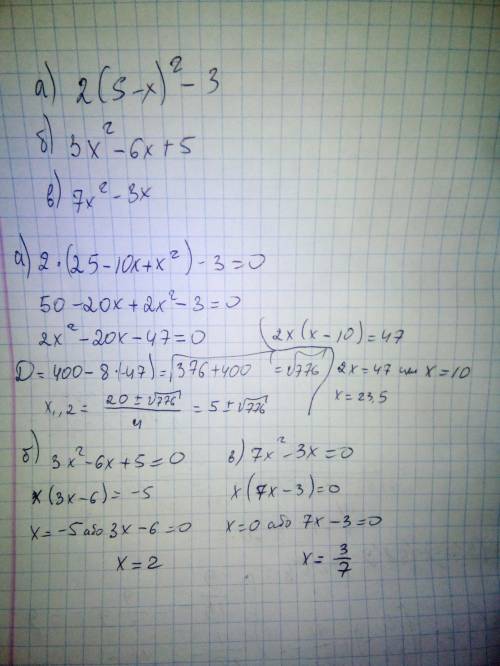 а) 2(5-x)² - 3
б) 3x² - 6x + 5
в) 7x² - 3x
а) 2·(25-10x+x²) - 3 = 0
50 - 20x + 2x² - 3 = 0
2x² - 20x - 47 = 0
(2x(x-10) = 47
D = 400 - 8·(-47) = √376+400 = √776
2x = 47 или x = 10
x = 23,5
x₁,₂ = (20 ± √776)/4 = 5 ± √776
б) 3x² - 6x + 5 = 0
x(3x-6) = -5
x = -5 або 3x - 6 = 0
x = 2
в) 7x² - 3x = 0
x(7x-3) = 0
x = 0 або 7x - 3 = 0
x = 3/7